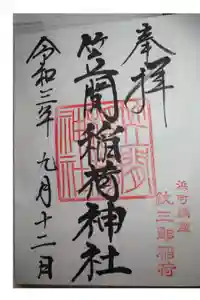 奉拝
浜町鎮座
紋三郎稲荷
笠間稲荷神社
令和三年 九月十二日